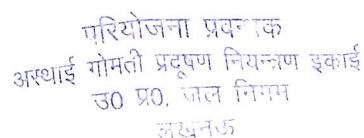 परियोजना प्रबन्धक
अस्थाई गोमती प्रदूषण नियन्त्रण इकाई
उ0 प्र0, जल निगम
लखनऊ